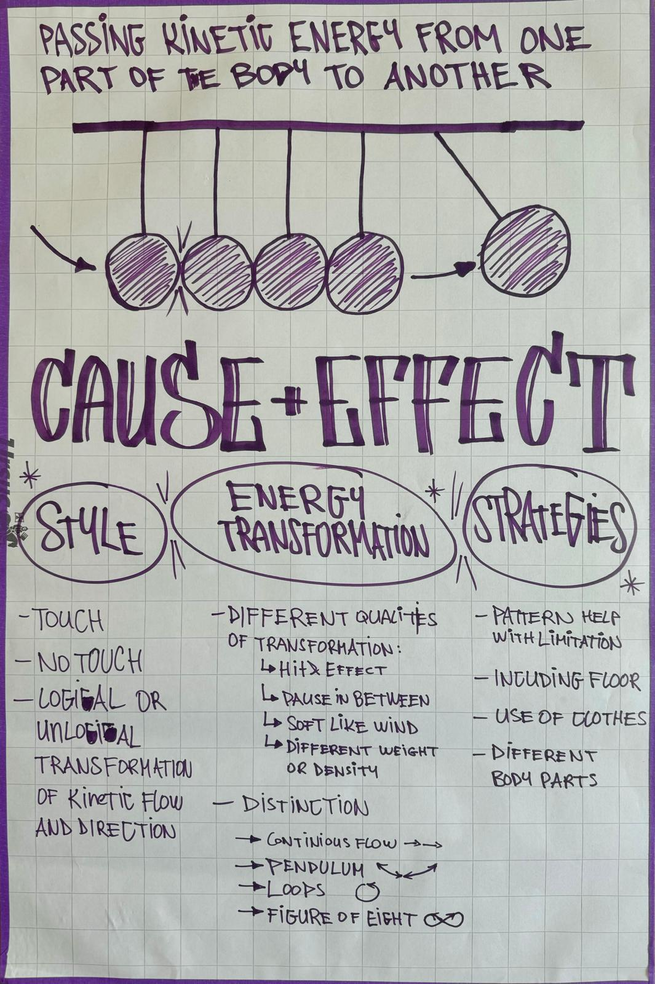 PASSING KINETIC ENERGY FROM ONE
PART OF TE BODY TO ANOTHER
CAUSE + EFFECT
STYLE
ENERGY
TRANSFORMATION
STRATEGIES
- TOUCH
- NO TOUCH
- LOGICAL OR
UNLOGICAL
TRANSFORMATION
OF KINETIC FLOW
AND DIRECTION
- DIFFERENT QUALITIES
OF TRANSFORMATION:
↳ HIT & EFFECT
↳ PAUSE IN BETWEEN
↳ SOFT LIKE WIND
↳ DIFFERENT WEIGHT
OR DENSITY
- DISTINCTION
→ CONTINIOUS FLOW →→
→ PENDULUM
→ LOOPS
→ FIGURE OF EIGHT
- PATTERN HELP
WITH LIMITATION
- INCLUDING FLOOR
- USE OF CLOTHES
- DIFFERENT
BODY PARTS